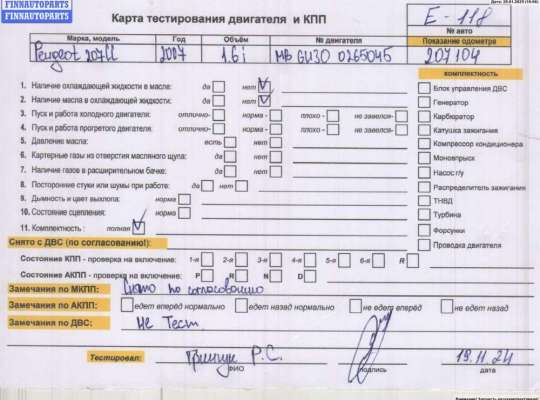 FINNAUTOPARTS
FINNAUTOPARTS
Карта тестирования двигателя и КПП
E-118
№ авто
Марка, модель
Год
Объём
№ двигателя
Показание одометра
Peugeot 207CC
2007
1.6i
207104
комплектность
1. Наличие охлаждающей жидкости в масле: да нет
Блок управления ДВС
2. Наличие масла в охлаждающей жидкости: да нет
Генератор
3. Пуск и работа холодного двигателя: отлично- норма - плохо - не завелся-
Карбюратор
4. Пуск и работа прогретого двигателя: отлично- норма - плохо - не завелся-
Катушка зажигания
5. Давление масла: есть нет
Компрессор кондиционера
6. Картерные газы из отверстия масляного щупа: да нет
Моновпрыск
7. Наличие газов в расширительном бачке: да нет
Насос г/у
8. Посторонние стуки или шумы при работе: да нет
Распределитель зажигания
9. Дымность и цвет выхлопа: норма
ТНВД
10. Состояние сцепления: норма
Турбина
11. Комплектность : полная
Форсунки
Проводка двигателя
Снято с ДВС (по согласованию!):
Состояние КПП - проверка на включение: 1-я 2-я 3-я 4-я 5-я 6-я R
Состояние АКПП - проверка на включение: P R N D
Замечания по МКПП: Снято по согласованию
Замечания по АКПП: едет вперёд нормально едет назад нормально не едет вперёд не едет назад
Замечания по ДВС: Не Тест.
Тестировал: Р.С. 19.11.24
ФИО подпись дата